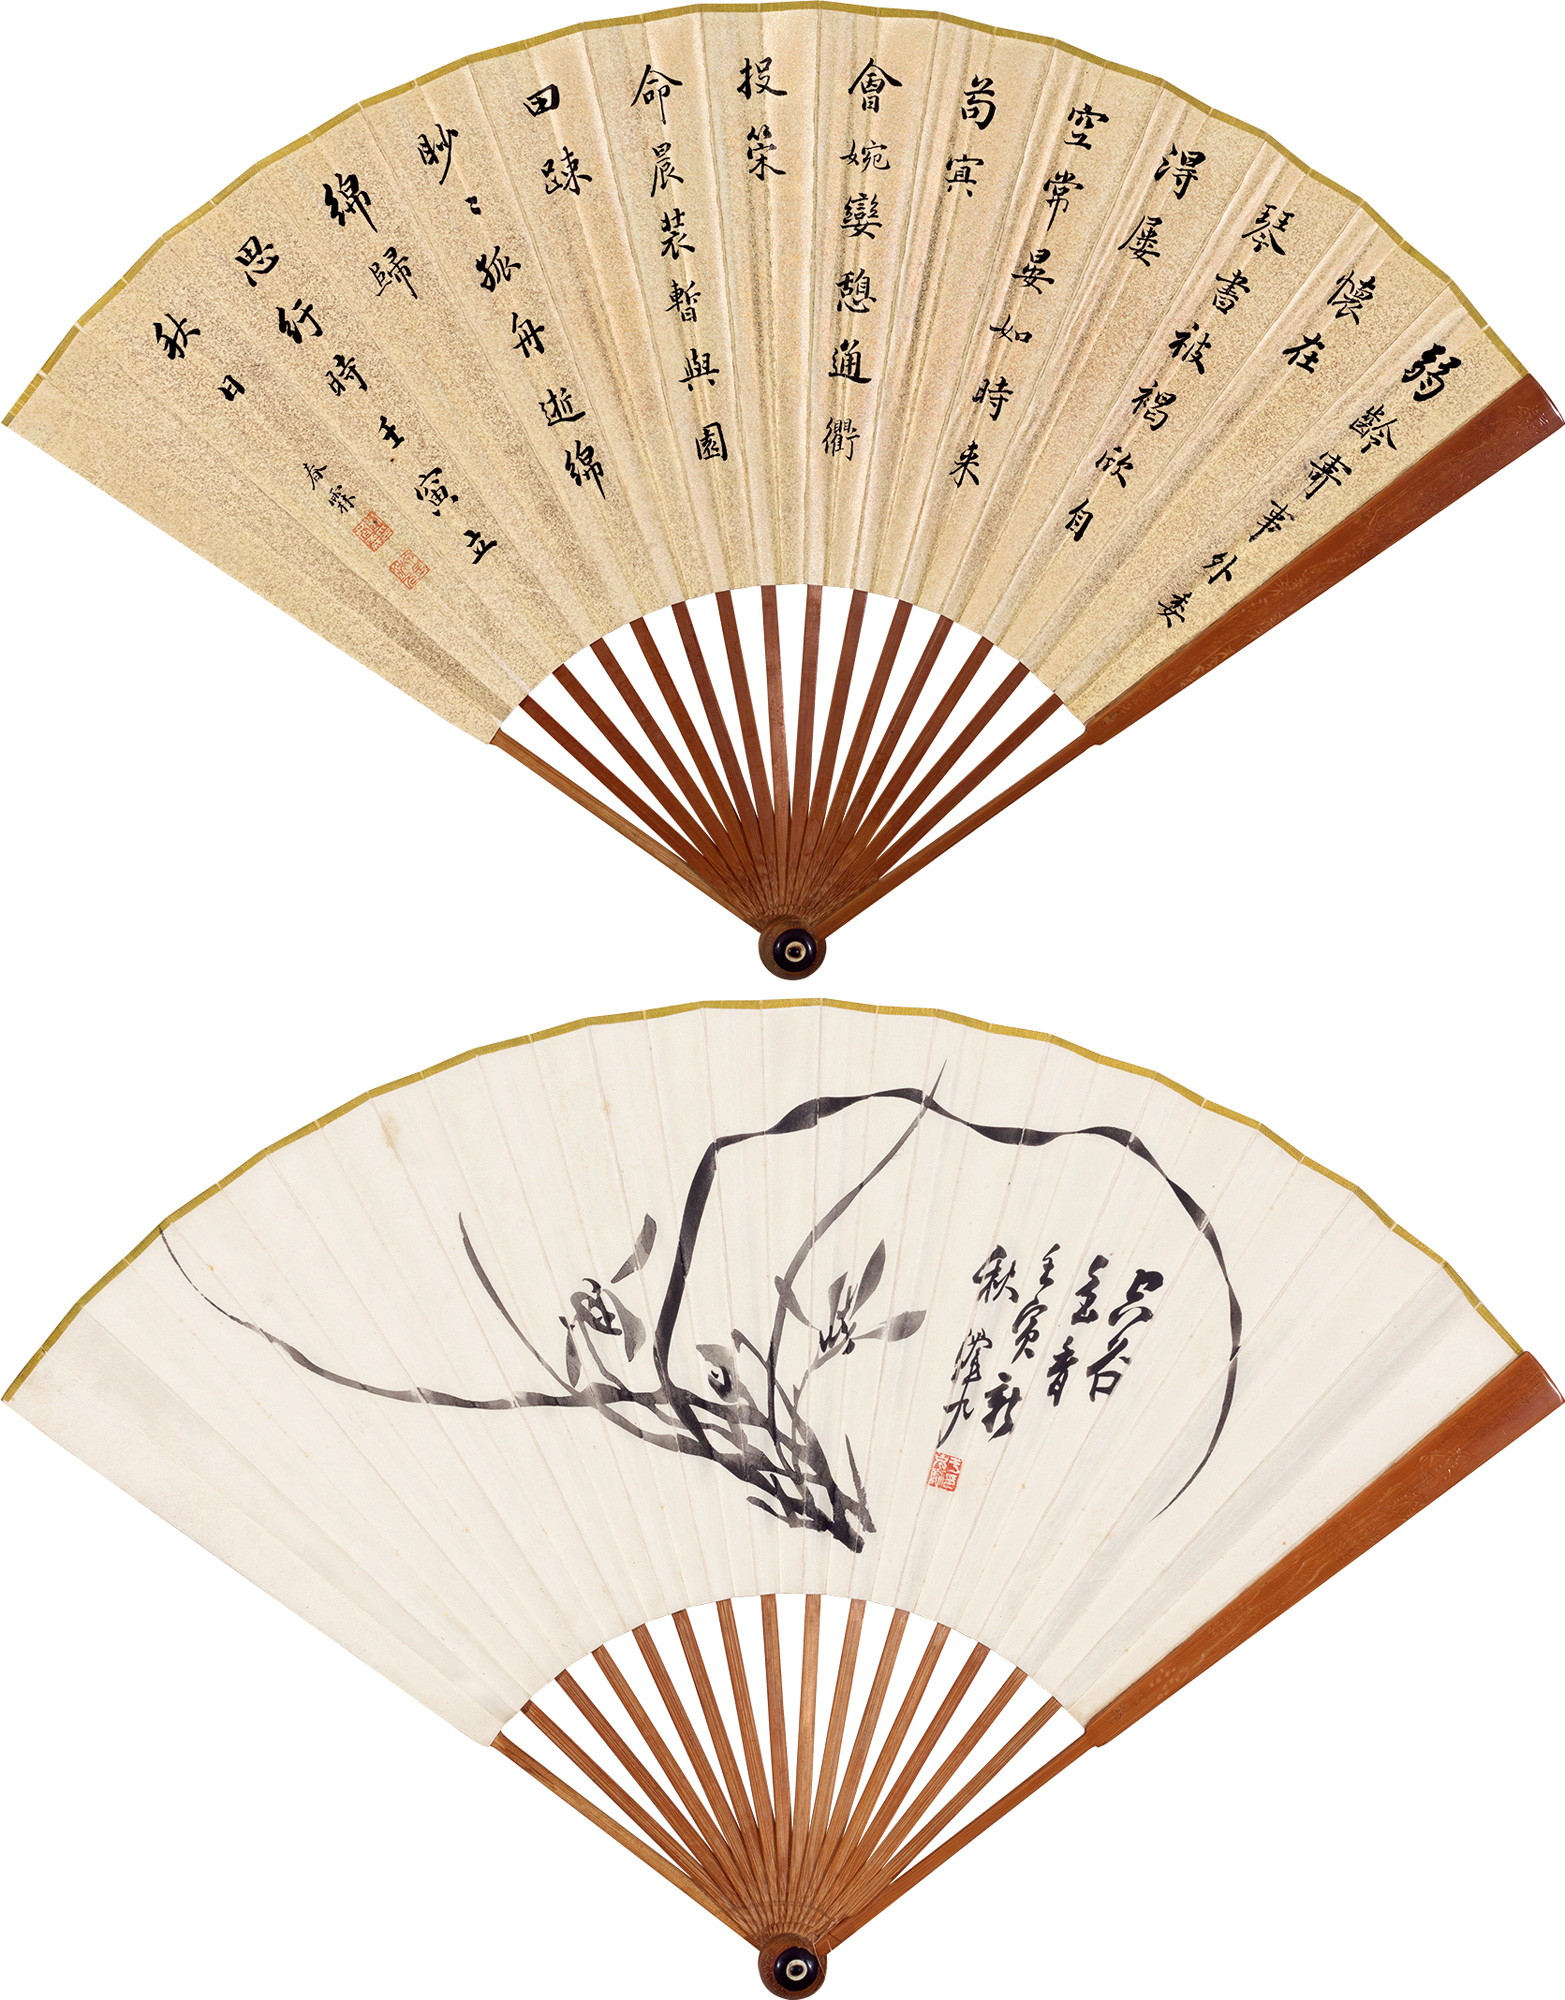 弱齡寄事外委
懷在
琴書被褐欣自
得屡
空常晏如時来
苟㝠
會婉孌憩通衢
投筞
命晨装暫與園
田踈
眇〻孤舟逝綿
綿歸
思行時壬寅立
秋日
春霖
空谷
香
壬寅新
秋
九